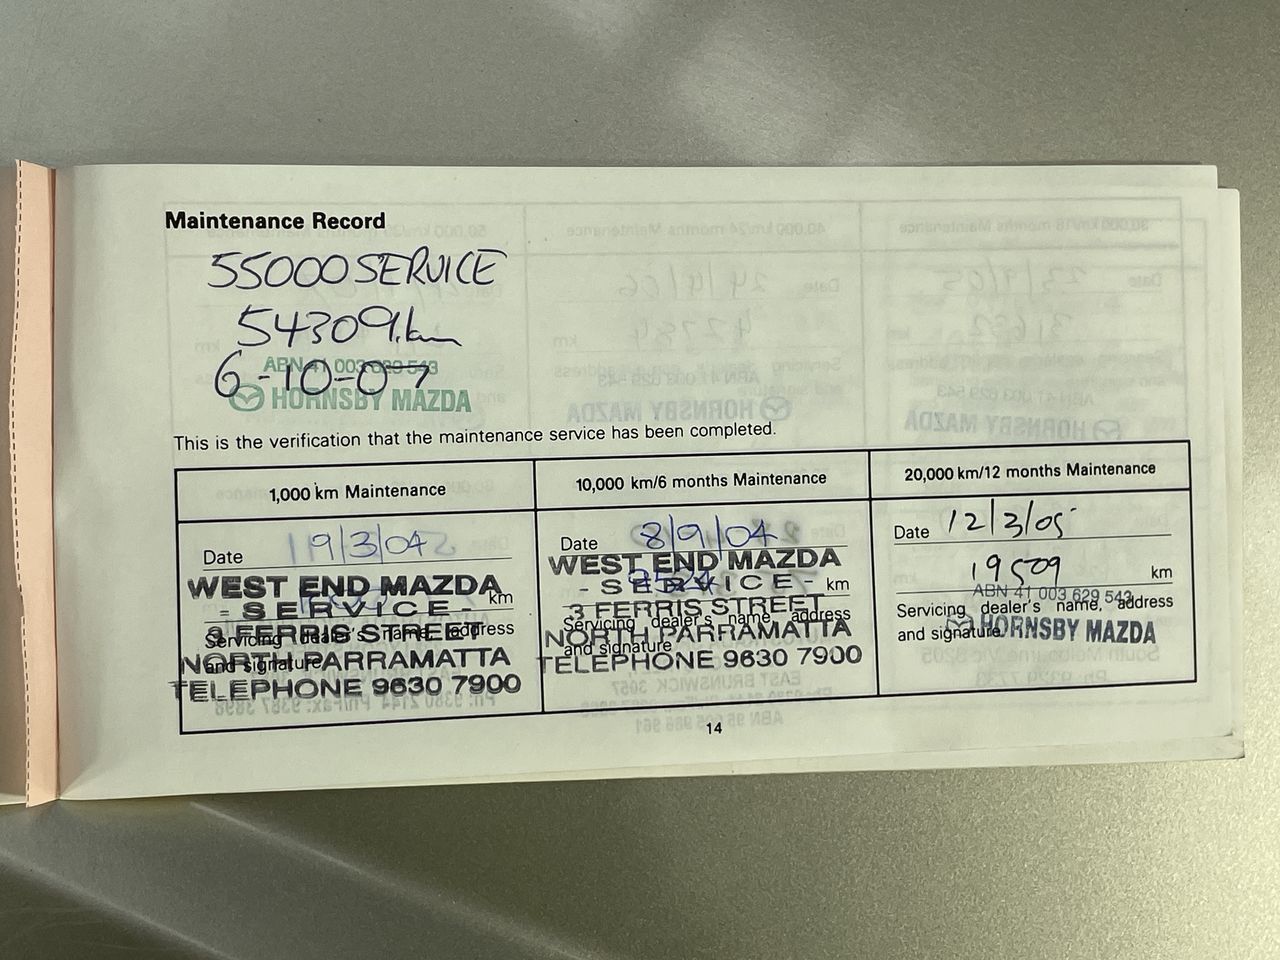 Maintenance Record
55000 SERVICE
54309km
6-10-07
ABN 41 003 629 543
HORNSBY MAZDA
This is the verification that the maintenance service has been completed.
1,000 km Maintenance
Date 19/3/04
WEST END MAZDA
- SERVICE - km
3 FERRIS STREET
Servicing dealer's name, address
and signature
NORTH PARRAMATTA
TELEPHONE 9630 7900
10,000 km/6 months Maintenance
Date 8/9/04
WEST END MAZDA
- SERVICE - km
3 FERRIS STREET
Servicing dealer's name, address
NORTH PARRAMATTA
and signature
TELEPHONE 9630 7900
20,000 km/12 months Maintenance
Date 12/3/05
19509 km
ABN 41 003 629 543
Servicing dealer's name, address
and signature HORNSBY MAZDA
14